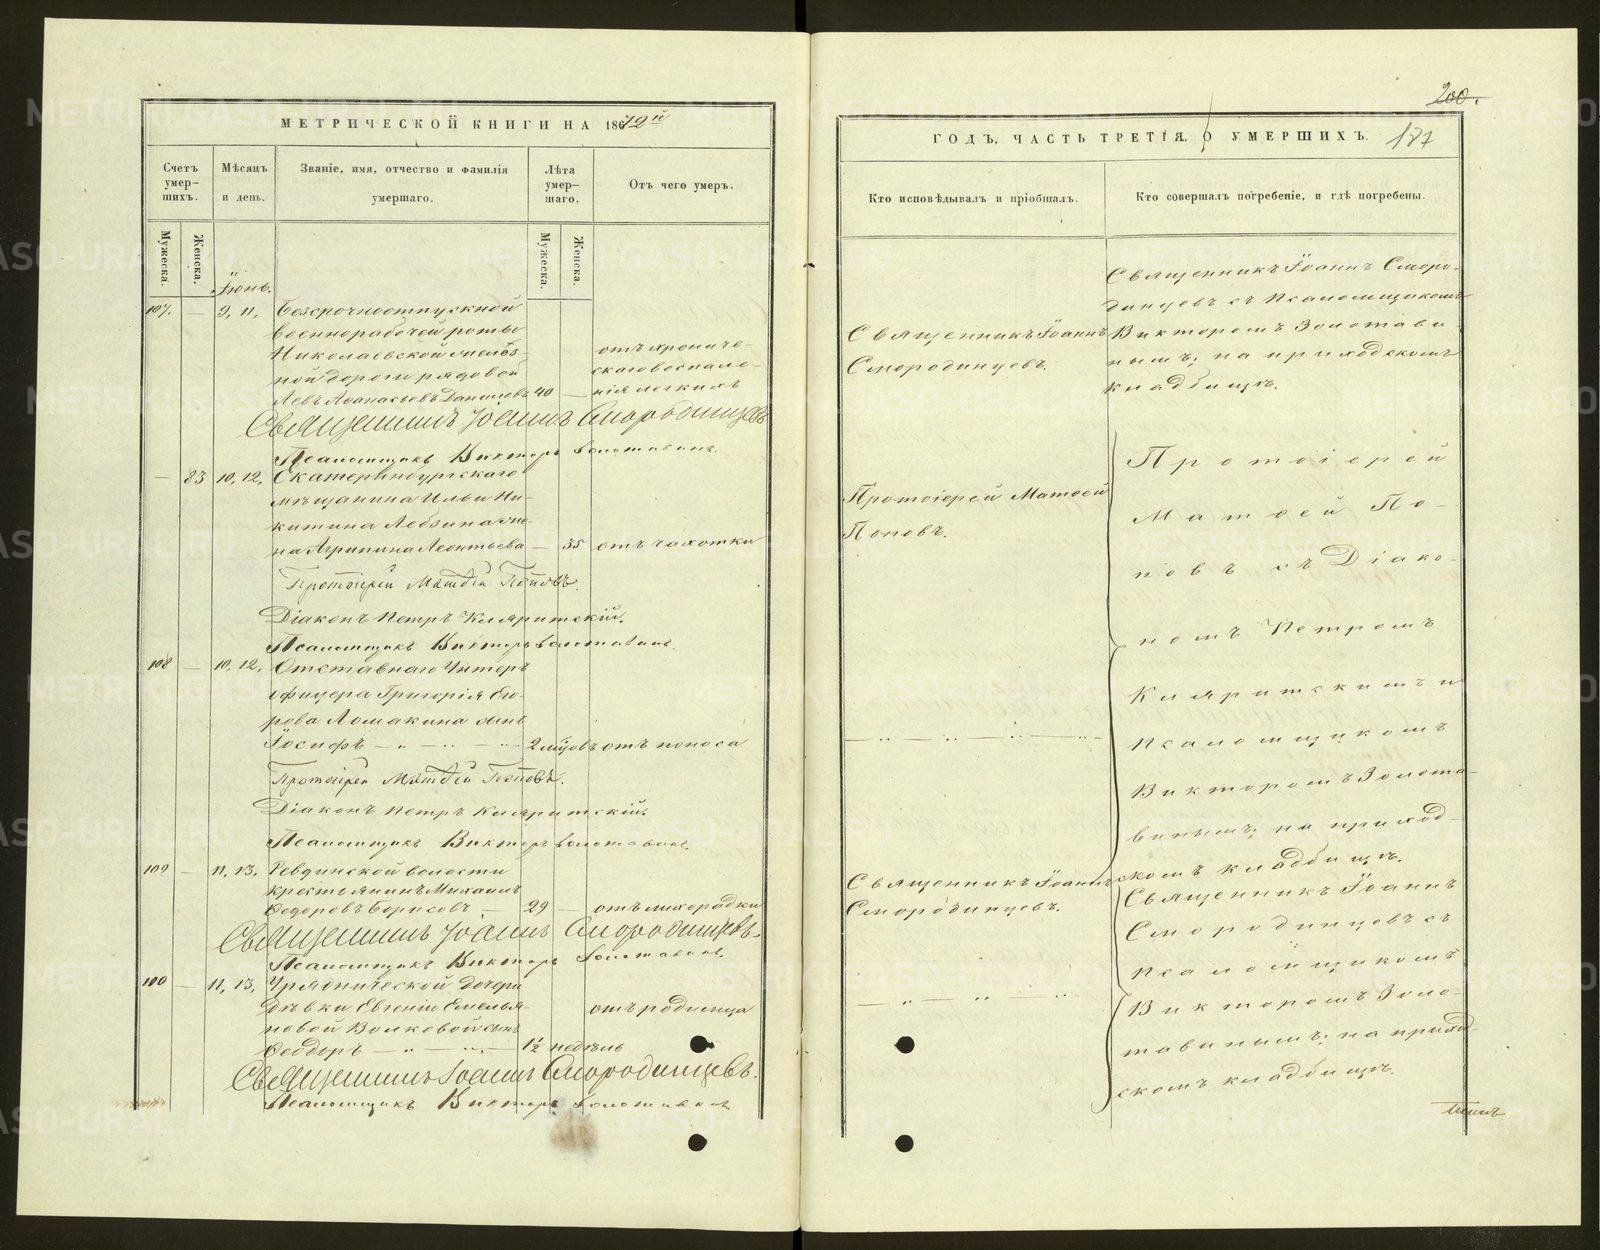 200.
МЕТРИЧЕСКОЙ КНИГИ НА 18672й
Счетъ умер-шихъ.
Мѣсяцъ и день.
Званіе, имя, отчество и фамилія умершаго.
Лѣта умер-шаго.
Отъ чего умеръ.
Мужеска.
Женска.
Мужеска.
Женска.
Іюнь.
107. — 9, 11, Безсрочноотпускной
военнорабочей роты
Николаевской желѣз-
ной дороги рядовой
Левъ Аѳанасьевъ Даниловъ 40 —
отъ хрониче-
скаго воспале-
нія легкихъ
Священникъ Іоаннъ Смородинцевъ
Псаломщикъ Викторъ Золотавинъ.
— 83 10, 12, Екатеринбургскаго
мѣщанина Ильи Ни-
китина Лебзина же-
на Агрипина Леонтьева — 35 отъ чахотки
Протоіерей Матѳей Поповъ.
Діаконъ Петръ Киляритскій.
Псаломщикъ Викторъ Золотавинъ.
108 — 10, 12, Отставнаго Унтеръ
офицера Григорія Его-
рова Ломакина сынъ
Іосифъ — „ — „ — 2 мѣсяцовъ отъ поноса
Протоіерей Матѳей Поповъ.
Діаконъ Петръ Киляритскій.
Псаломщикъ Викторъ Золотавинъ.
109 — 11, 13. Ревдинской волости
крестьянинъ Михаилъ
Ѳедоровъ Борисовъ — 29 — отъ лихорадки
Священникъ Іоаннъ Смородинцевъ.
Псаломщикъ Викторъ Золотавинъ.
100 — 11, 13, Урядничской дочери
дѣвки Евгеніи Емелья-
новой Волковой сынъ
Ѳеодоръ — „ — „ — 1½ недѣль
отъ родимца
Священникъ Іоаннъ Смородинцевъ.
Псаломщикъ Викторъ Золотавинъ
ГОДЪ, ЧАСТЬ ТРЕТІЯ, О УМЕРШИХЪ.
187
Кто исповѣдывалъ и пріобщалъ.
Кто совершалъ погребеніе, и гдѣ погребены.
Священникъ Іоаннъ
Смородинцевъ.
Священникъ Іоаннъ Сморо-
динцевъ съ Псаломщикомъ
Викторомъ Золотави-
нымъ; на приходскомъ
кладбищѣ.
Протоіерей Матѳей
Поповъ.
Протоіерей
Матѳей По-
повъ съ Діако-
номъ Петромъ
Киляритскимъ и
псаломщикомъ
Викторомъ Золота-
винымъ; на приход-
скомъ кладбищѣ.
— „ — „ — „ —
Священникъ Іоаннъ
Смородинцевъ.
Священникъ Іоаннъ
Смородинцевъ съ
псаломщикомъ
Викторомъ Золо-
тавинымъ; на приход-
скомъ кладбищѣ.
— „ — „ — „